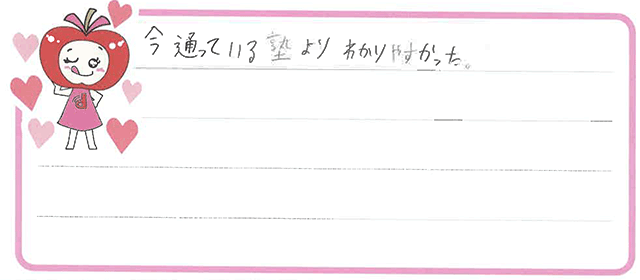 今通っている塾よりわかりやすかった。